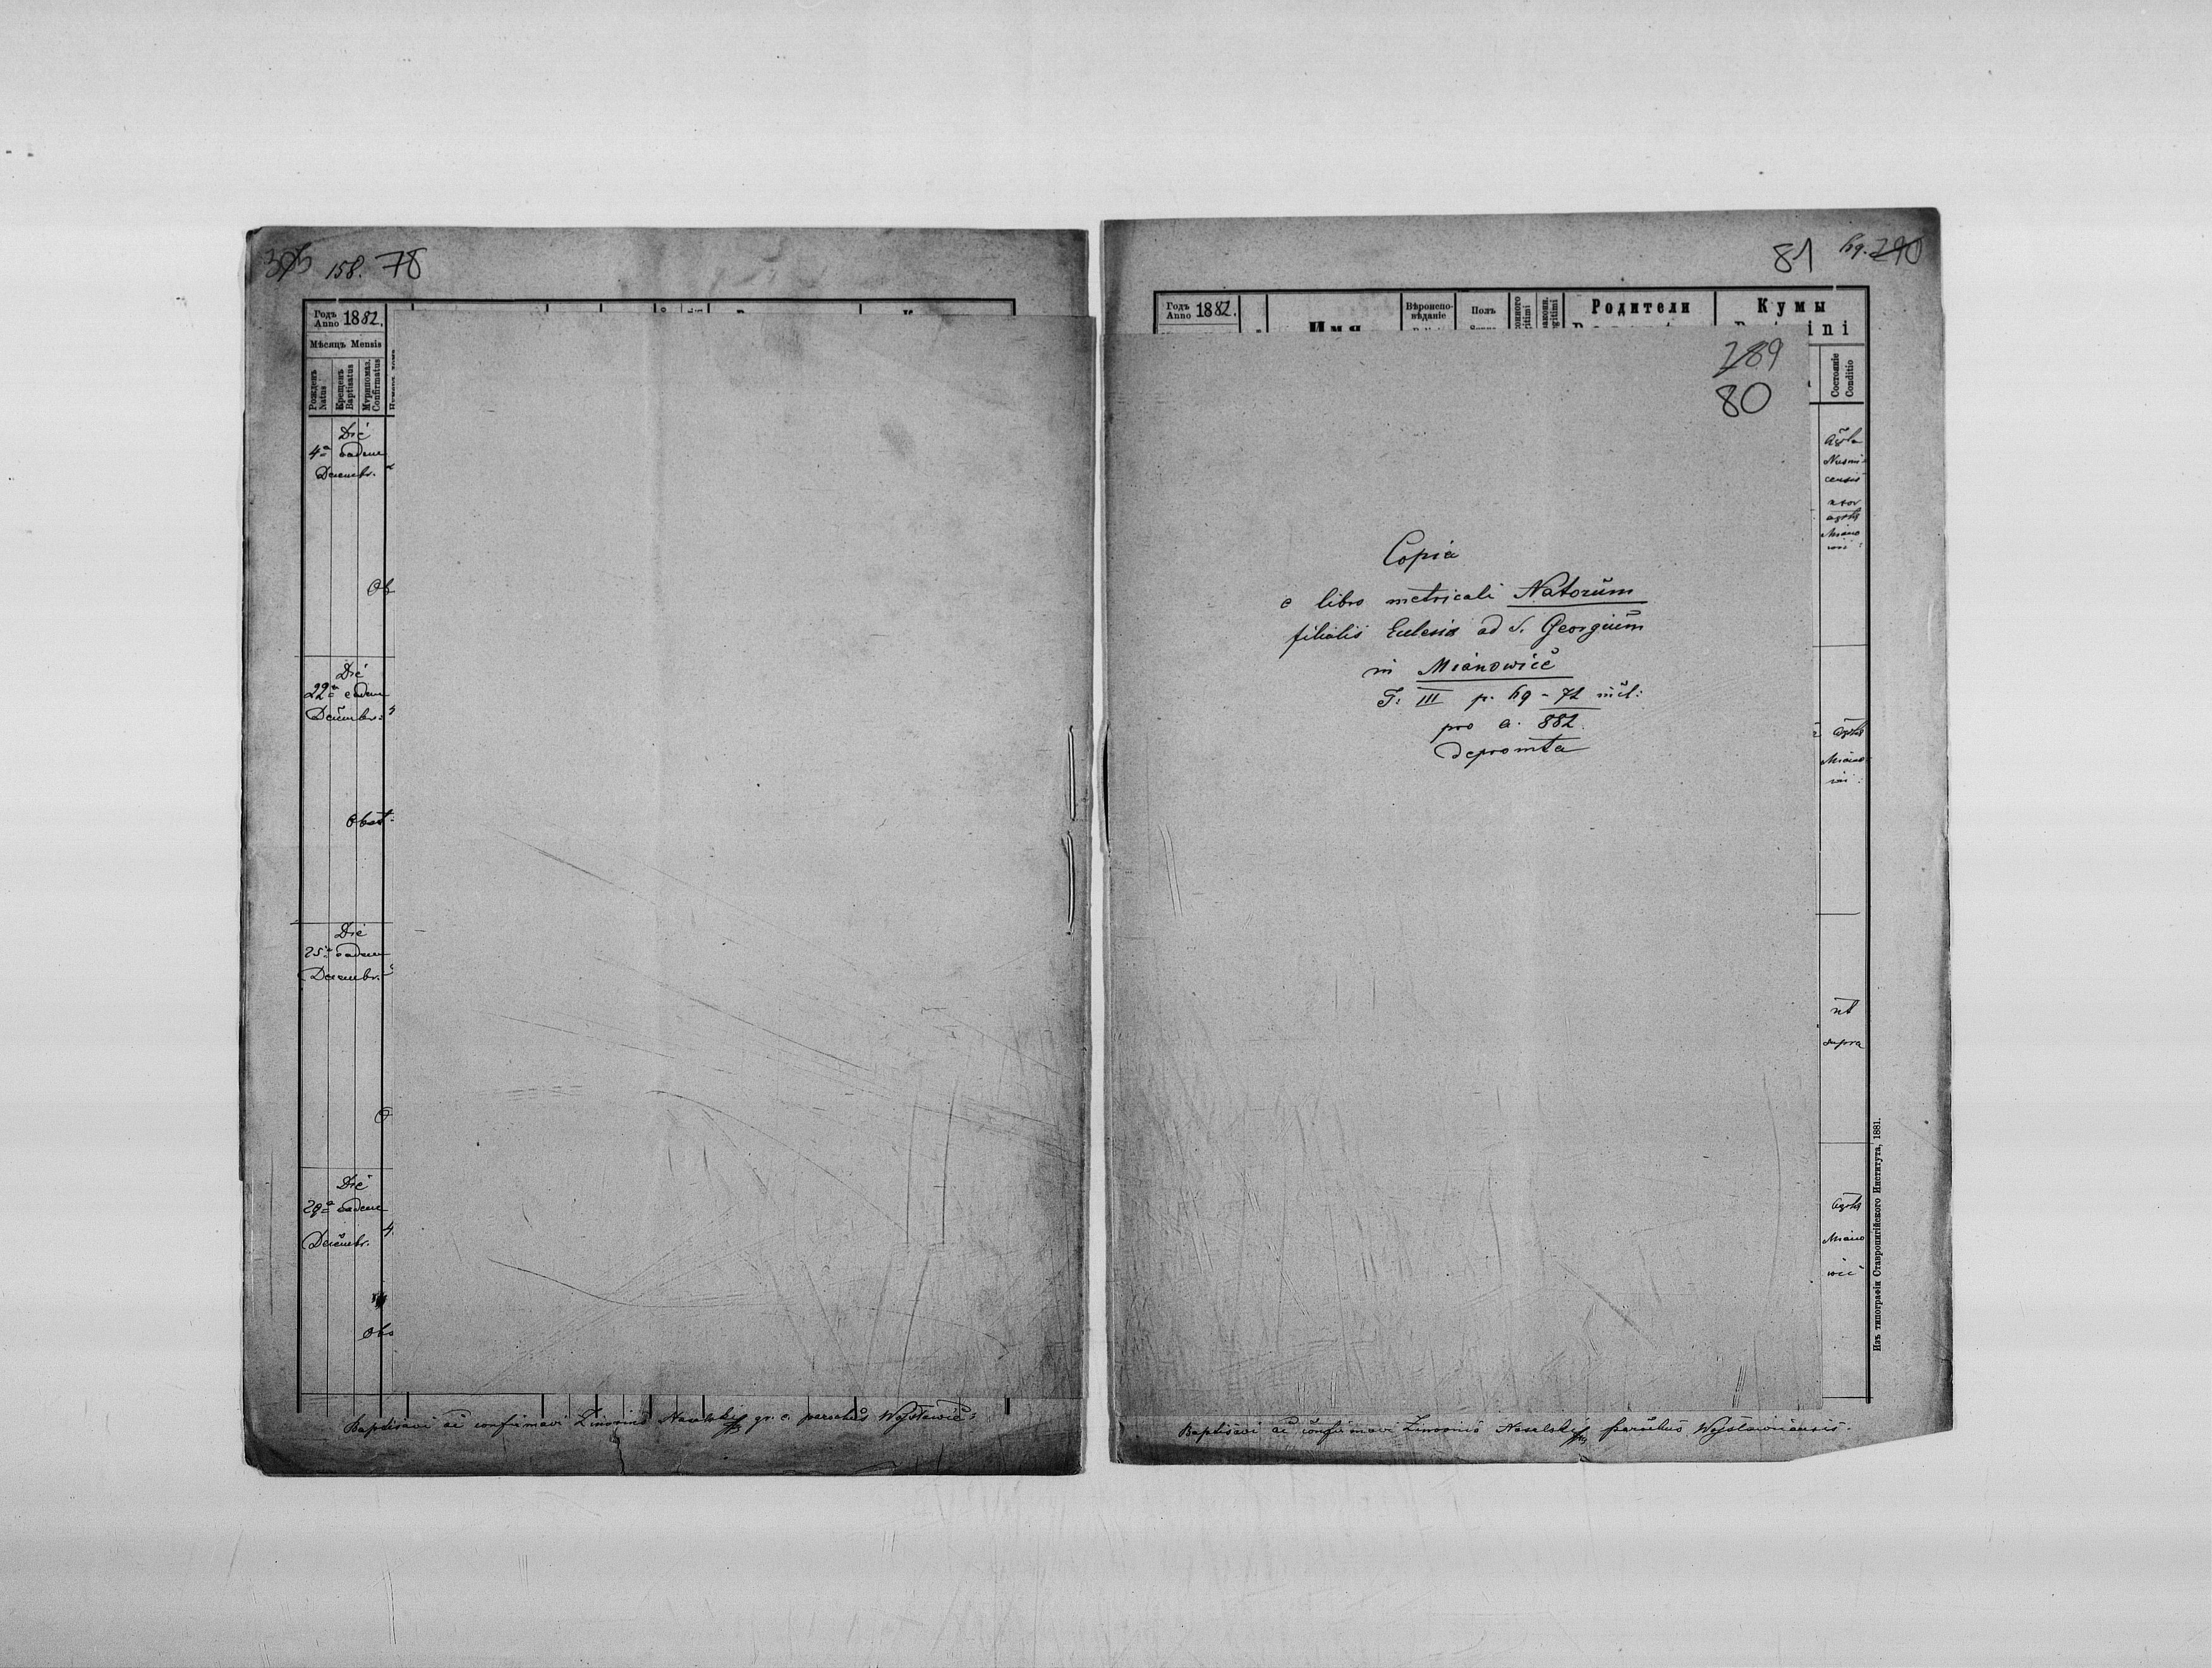 158. 78
Годъ Anno 1882.
Мѣсяцъ Mensis
Рожденъ Natus
Крещенъ Baptisatus
Мѵропомаз. Confirmatus
Die
4ª eadem
Decembr.
Ob
Die
22ª eadem
Decembr:
Obst:
Die
25ª eadem
Decembr.
O
Die
29ª eadem
Decembr. 4.
Obs
Baptisavi ac confirmavi gr. c. parochus
81 69. 290
Годъ Anno 1882.
Имя
Вѣроиспо-вѣданіе
Полъ
Родители
Кумы
ini
Состояніе Conditio
289
80
Copia
e libro metricali Natorum
filialis Ecclesia ad S. Georgium
in Mianowice
T: III p. 69 - 72 incl:
pro a. 882
depromta
uxor
Miano
Miano
ut
supra
Miano
wic
Изъ типографіи Ставропигійского Института, 1881.
Baptisavi ac confirmavi parochus